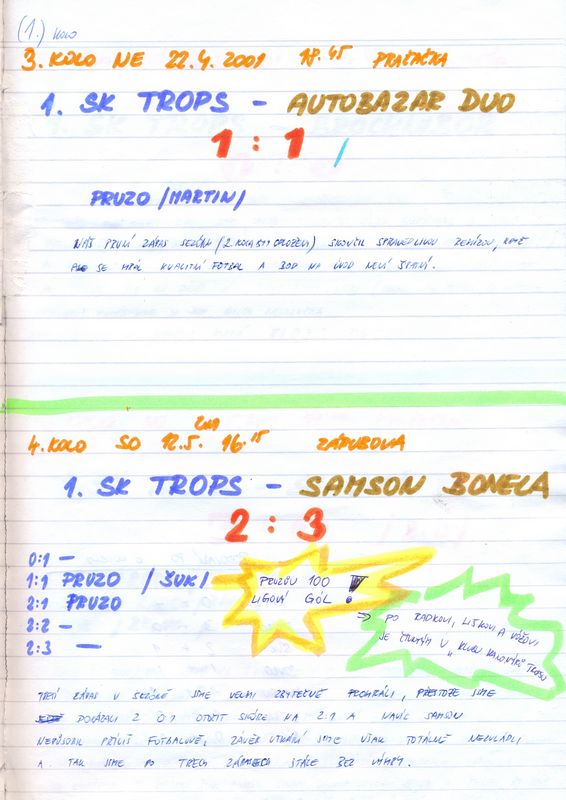 (1.) KOLO
3. KOLO NE 22.4.2001 18.45 PRAČAČKA
1. SK TROPS - AUTOBAZAR DUO
1 : 1
PRUZO /MARTIN/
NÁŠ PRVNÍ ZÁPAS SEZÓNY (2. KOLA BYLA ODLOŽENA) SKONČIL SPRAVEDLIVOU REMÍZOU,
ALE SE HRÁL KVALITNÍ FOTBAL A BOD NA ÚVOD NENÍ ŠPATNÝ.
4. KOLO SO 12.5. 2001 16.15 ZÁRUBOVA
1. SK TROPS - SAMSON BONELA
2 : 3
0:1 —
1:1 PRUZO /ŠUK/
2:1 PRUZO
2:2 —
2:3 —
PRUZŮV 100
LIGOVÝ GÓL!
=> PO RADKOVI, LIŠKOVI A
JE ČTVRTÝM V „KLUBU KANONÝRŮ" TROPSU
TŘETÍ ZÁPAS V SEZÓNĚ JSME VELMI ZBYTEČNĚ PROHRÁLI, PŘESTOŽE JSME
DOKÁZALI Z 0:1 OTOČIT SKÓRE NA 2:1 A NAVÍC SAMSON
NEPŮSOBIL PŘÍLIŠ FOTBALOVĚ, ZÁVĚR UTKÁNÍ JSME VŠAK TOTÁLNĚ NEZVLÁDLI
A TAK JSME PO TŘECH ZÁPASECH STÁLE BEZ VÝHRY.